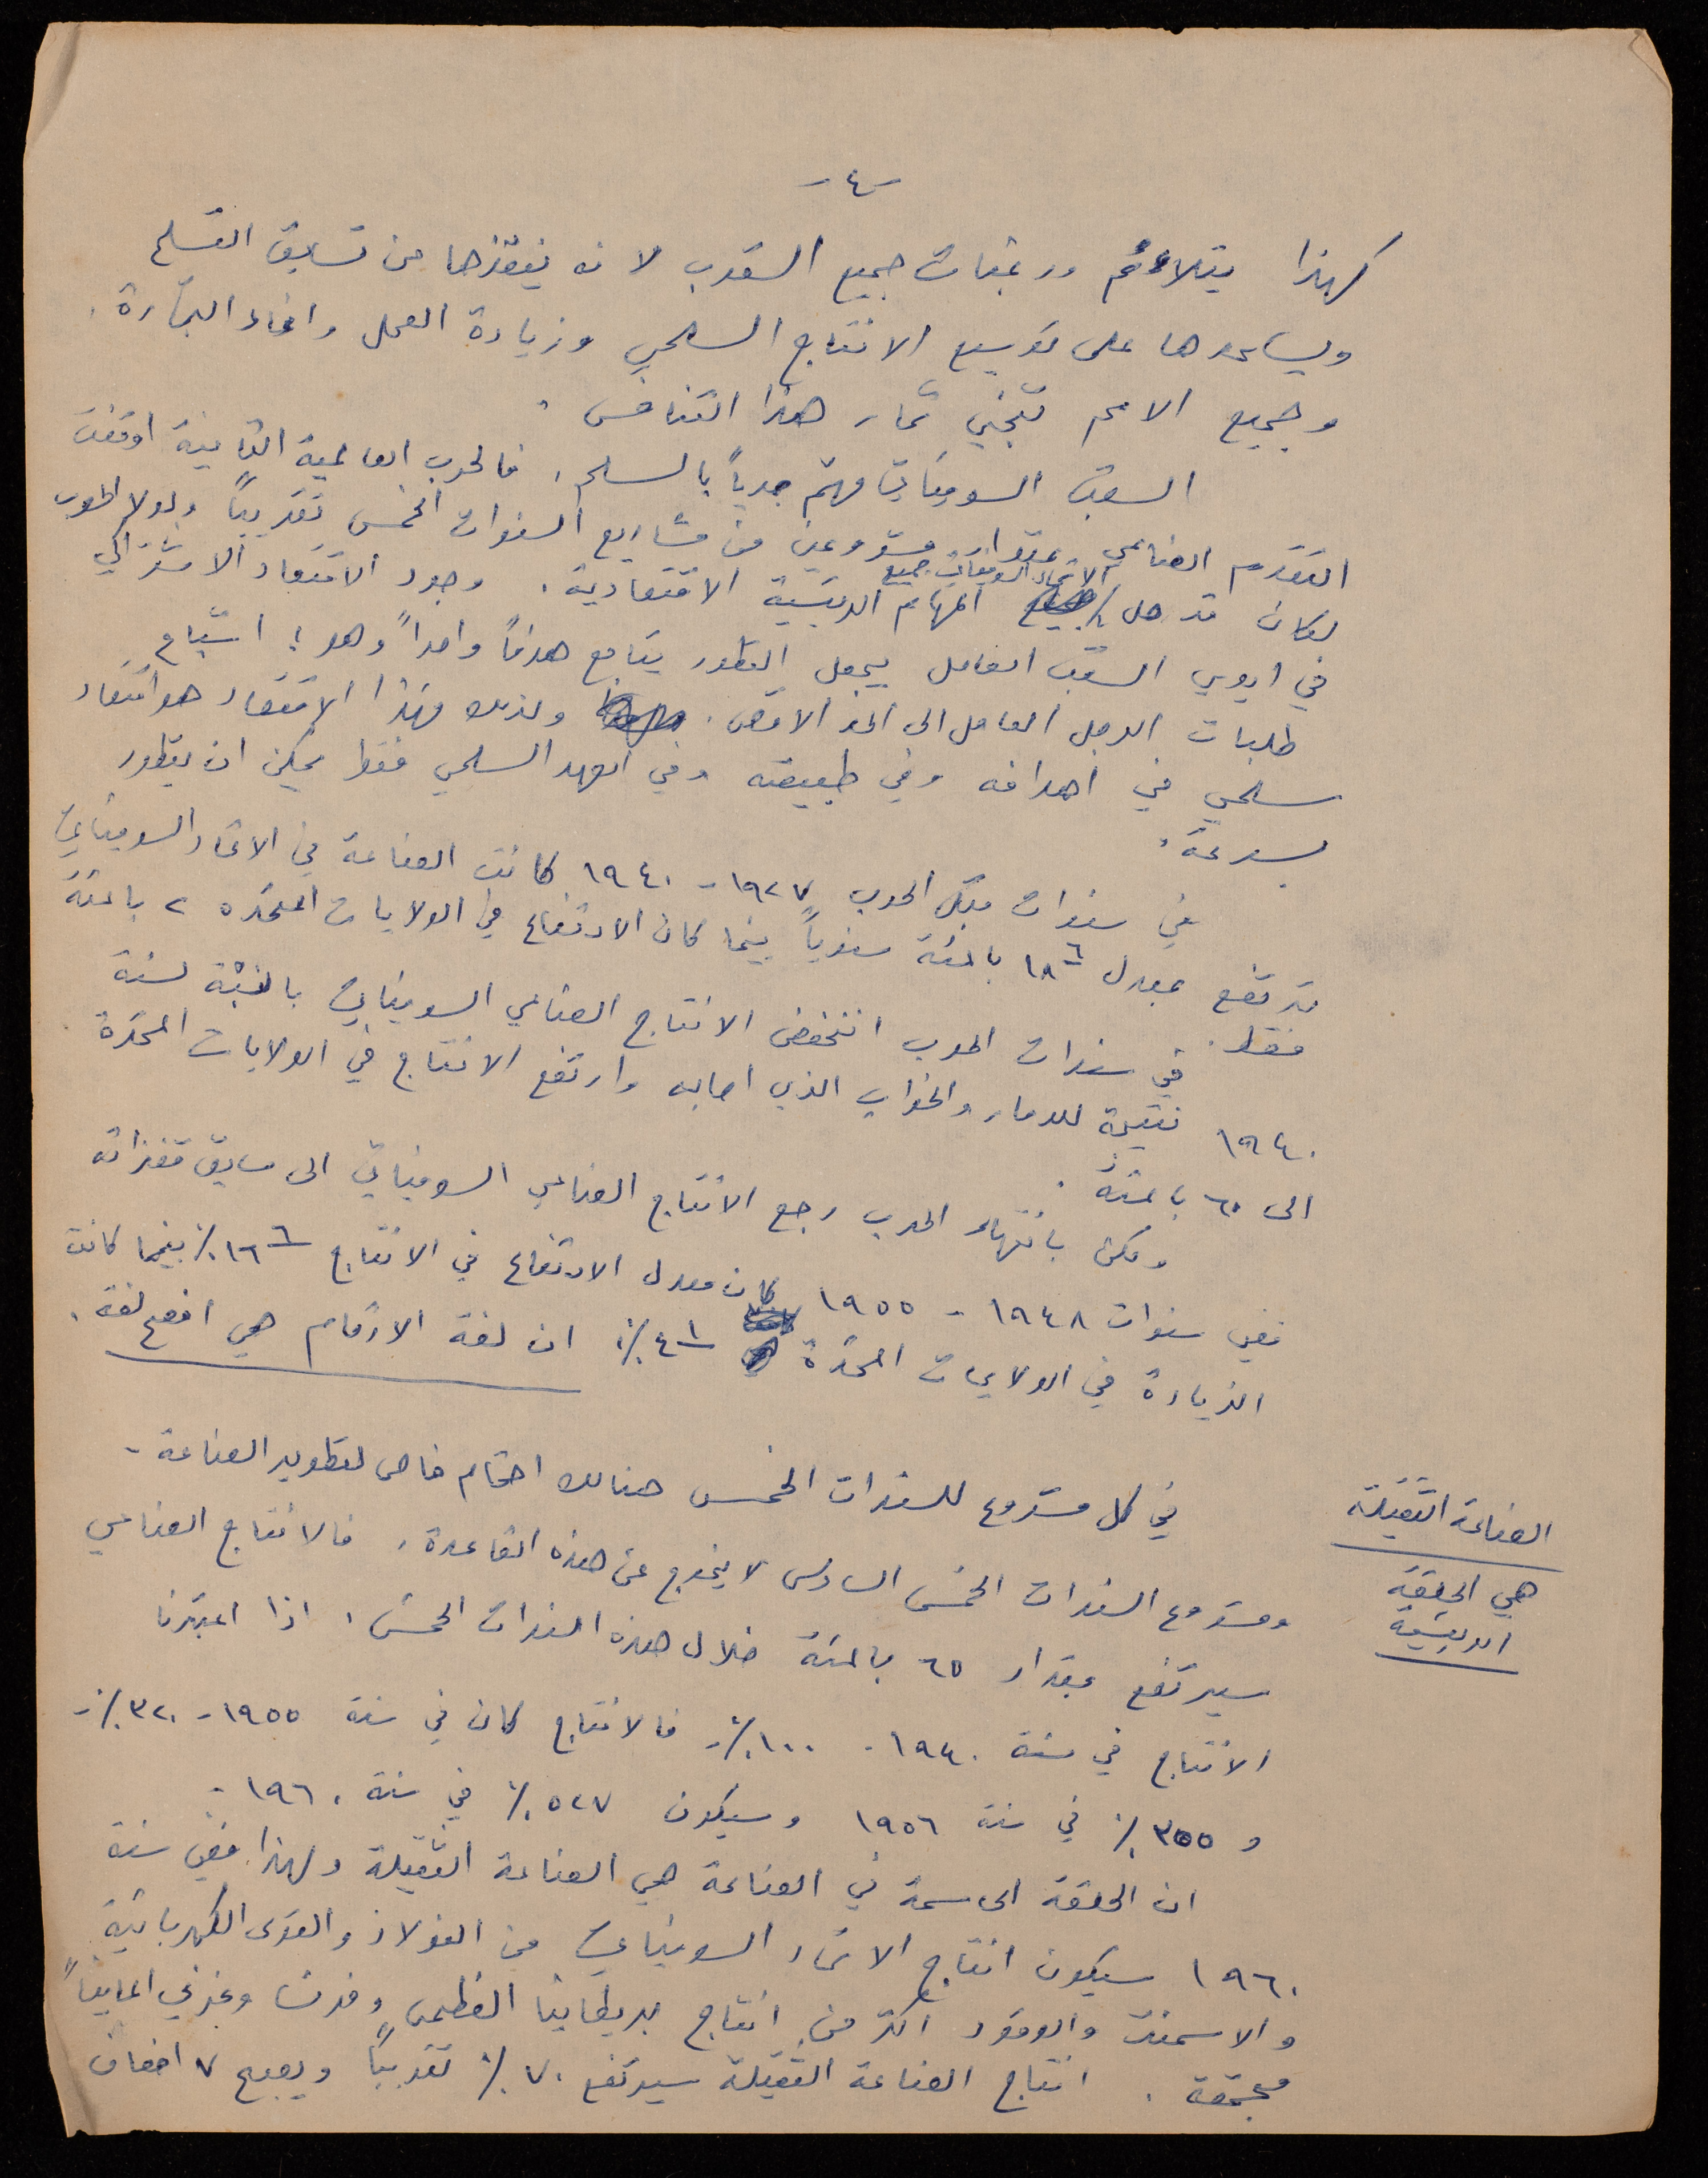 -٤-
كهذا يتلاءم ورغبات جميع الشعوب لانه ينقذها من تسابق التسلح
ويساعدها على توسيع الانتاج السلمي وزيادة العمل وانماء التجارة.
وجميع الامم تجني ثمار هذا التنافس.
الشعب السوفياتي مهتم جدياً بالسلم. فالحرب العالمية الثانية اوقفت
التقدم الصناعي بمقدار مشروعين من مشاريع السنوات الخمس تقريباً ولولا الحرب
لكان قد حل الاتحاد السوفياتي جميع المهام الرئيسية الاقتصادية. وجود الاقتصاد الاشتراكي
في ايدي الشعب العامل يجعل التطور يتابع هدفاً واحداً وهو: اشباع
طلبات الرجل العامل الى الحد الاقصى. ولذلك فهذا الاقتصاد هو اقتصاد
سلمي في اهدافه وفي طبيعته وفي العهد السلمي فقط يمكن ان يتطور
بسرعة.
في سنوات قبل الحرب ١٩٢٧ - ١٩٤٠ كانت الصناعة في الاتحاد السوفياتي
ترتفع بمعدل ١٨٦ بالمئة سنوياً بينما كان الارتفاع في الولايات المتحده ٢ بالمئة
فقط.
في سنوات الحرب انخفض الانتاج الصناعي السوفياتي بالنسبة لسنة
١٩٤٠ نتيجة للدمار والخراب الذي اصابه وارتفع الانتاج في الولايات المتحدة
الى ٦٠ بالمئة.
ولكن بانتهاء الحرب رجع الانتاج الصناعي السوفياتي الى سابق قفزاته
ففي سنوات ١٩٤٨ - ١٩٥٥ كان معدل الارتفاع في الانتاج ١٦٦٪ بينما كانت
الزيادة في الولايات المتحدة ٤١٪ ان لغة الارقام هي افصح لغة.
الصناعة الثقيلة
هي الحلقة
الرئيسية
في كل مشروع للسنوات الخمس هنالك اهتمام خاص لتطوير الصناعة -
ومشروع السنوات الخمس السادس لا يخرج عن هذه القاعدة. فالانتاج الصناعي
سيرتفع بمقدار ٦٥ بالمئة خلال هذه السنوات الخمس. اذا اعتبرنا
الانتاج في سنة ١٩٤٠ - ١٠٠٪ - فالانتاج كان في سنة ١٩٥٥ - ٣٢٠٪ -
و ٣٥٥٪ في سنة ١٩٥٦ وسيكون ٥٢٧٪ في سنة ١٩٦٠ -
ان الحلقة الحاسمة في الصناعة هي الصناعة الثقيلة ولهذا ففي سنة
١٩٦٠ سيكون انتاج الاتحاد السوفياتي من الفولاذ والقوى الكهربائية
والاسمنت والوقود اكثر من انتاج بريطانيا العظمى وفرنسا وغربي المانيا
مجتمعة. انتاج الصناعة الثقيلة سيرتفع ٧٠٪ تقريباً ويصبح ٧ اضعاف